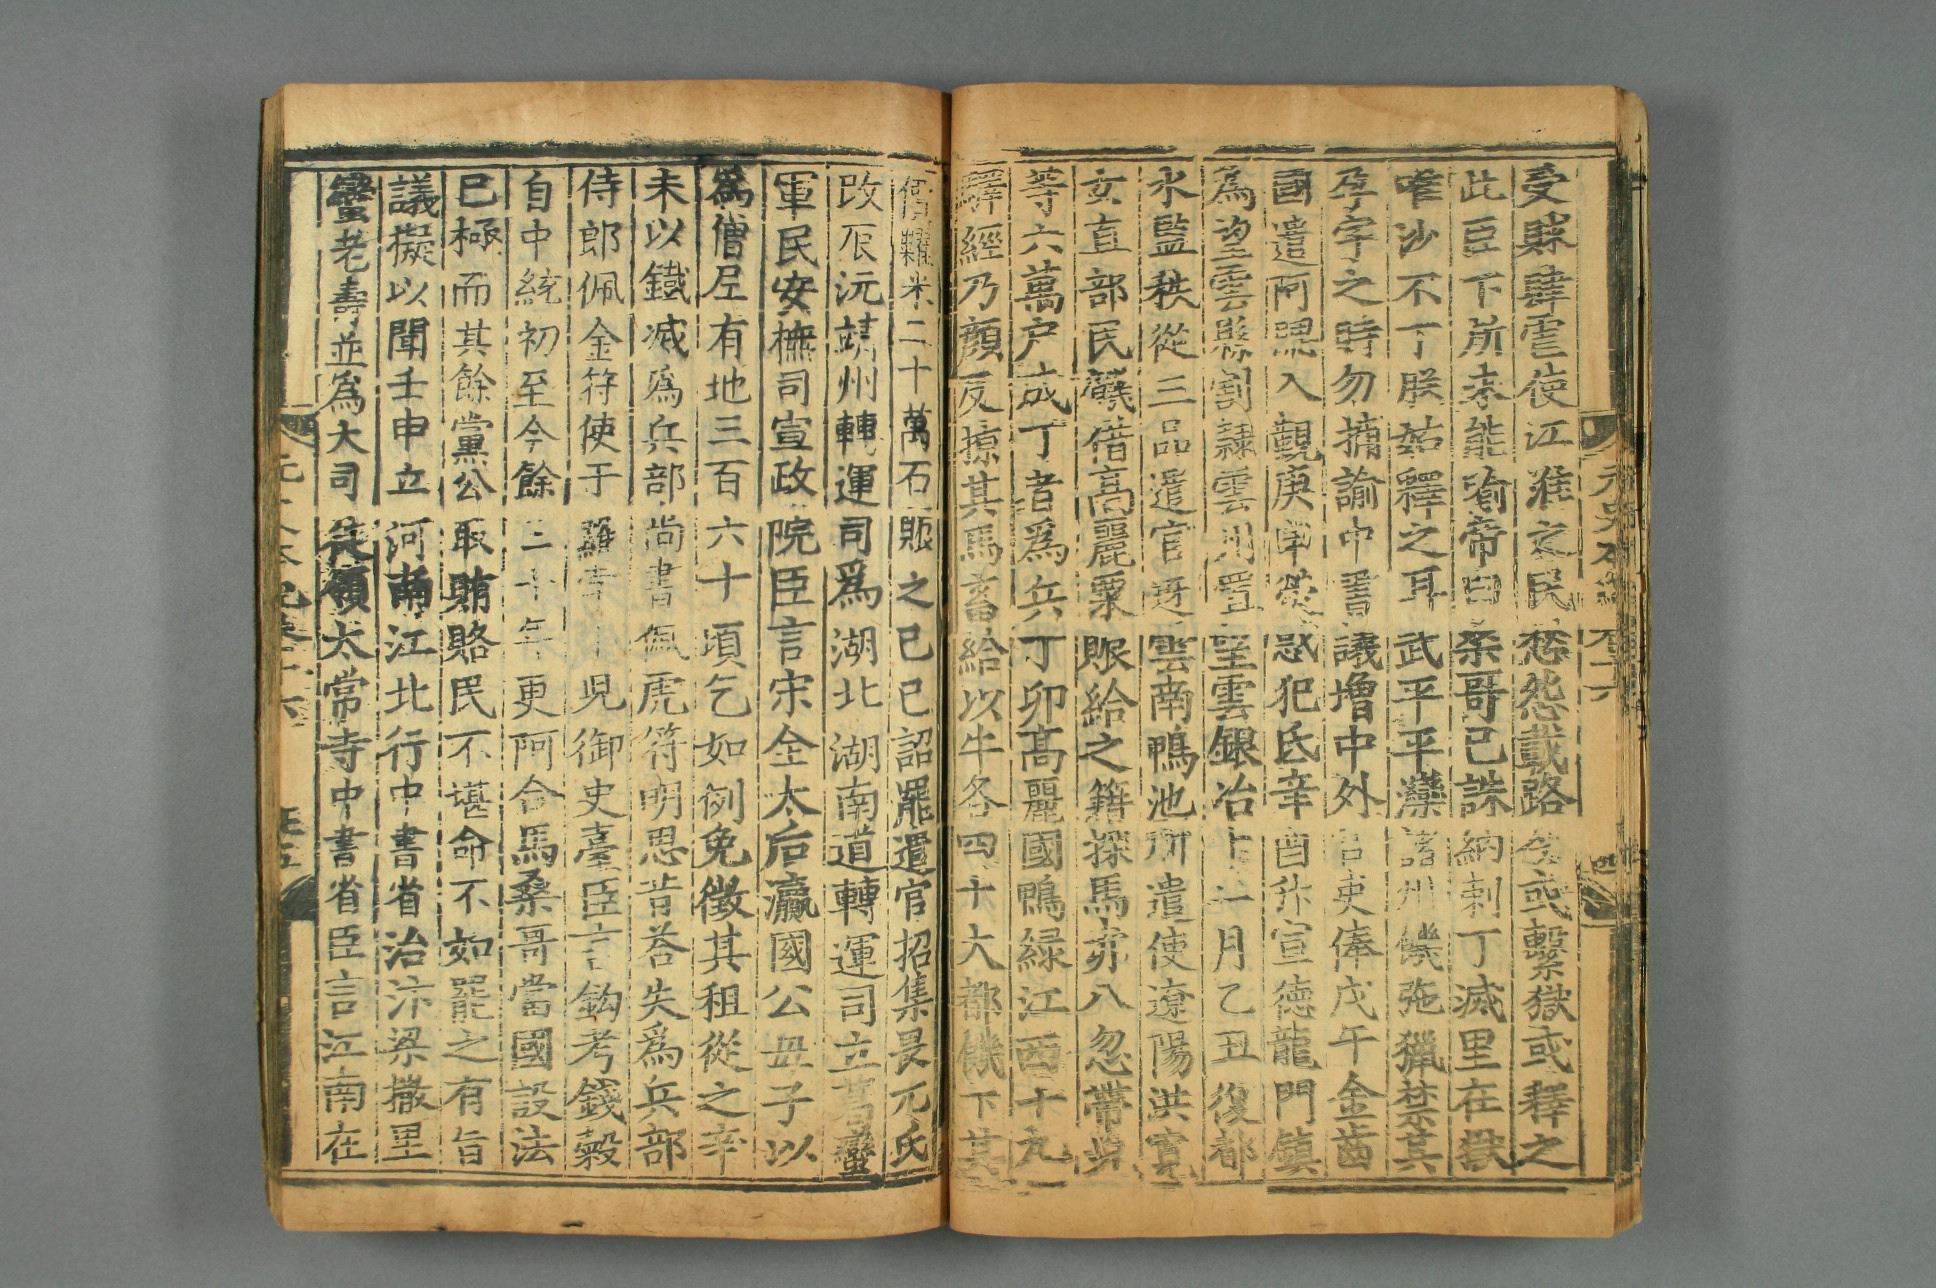 受賕肆虐使江淮之民愁怨載路今或繫獄或釋之
此臣下所未能喻帝曰桑哥已誅納剌丁滅里在獄
唯沙不丁朕姑釋之耳武平平灤諸州饑弛獵禁其
孕字之時勿捕諭中書議增中外官吏俸戊午金齒
國遣阿腮入觀庚申從惡犯氐辛酉升宣德龍門鎮
為望雲縣割隸雲州置望雲銀冶十一月乙丑復都
水監秩從三品遣官迓雲南鴨池所遣使遼陽洪寬
女直部民饑借高麗粟賑給之籍探馬赤八忽帶
等六萬戶成丁者為兵丁卯高麗國鴨綠江西十九
驛經乃顏反掠其馬畜給以牛各四十大都饑下其
價糶米二十萬石賑之己巳詔罷遣官招集畏兀氏
改辰沅靖州轉運司為湖北湖南道轉運司立葛蠻
軍民安撫司宣政院臣言宋全太后瀛國公母子以
為僧尼有地三百六十頃乞如例免徵其租從之辛
未以鐵滅為兵部尚書佩虎符明思昔荅失為兵部
侍郎佩金符使于羅孛卜兒御史臺臣言鈎考錢穀
自中統初至今餘三十年更阿合馬桑哥當國設法
已極而其餘黨公取賄賂民不堪命不如罷之有旨
議擬以聞壬申立河南江北行中書省治汴梁撒里
蠻老壽並為大司徒領太常寺中書省臣言江南在
元史本紀